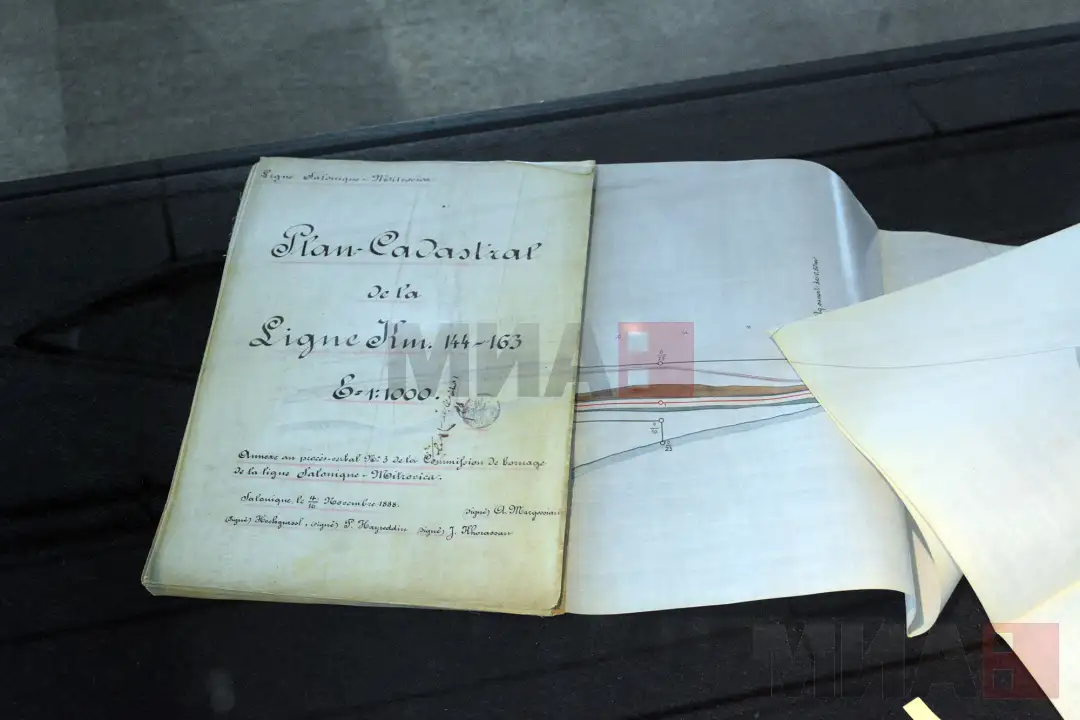 Ligne Salonique-Mitrovica
Plan-Cadastral
de la
Ligne Km. 144-163
E=1:1000.
Annexe au procès-verbal No. 3 de la Commission de bornage
de la ligne Salonique-Mitrovica.
Salonique, le 4/16 Novembre 1888.
signé) A. Margossian
(signé) , (signé) P. Hayreddin signé) J. Khorassan
МИА
МИА